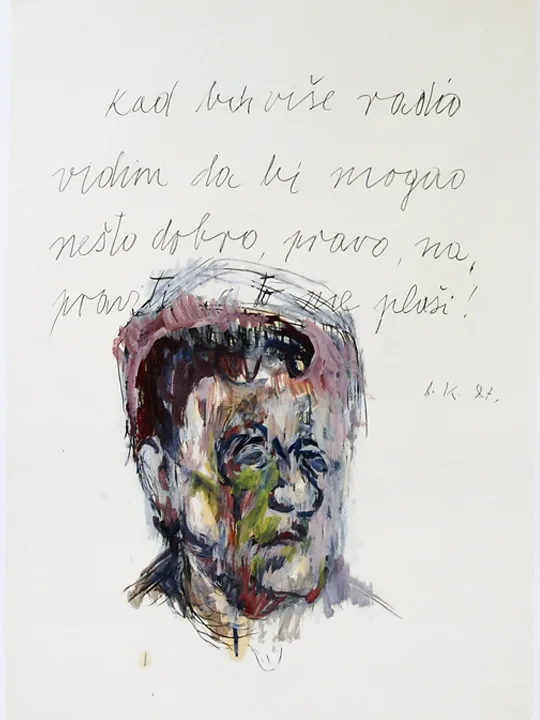 Kad bih više radio
vidim da bi mogao
nešto dobro, pravo, na,
praviti a to me plaši!
b. K. 87.